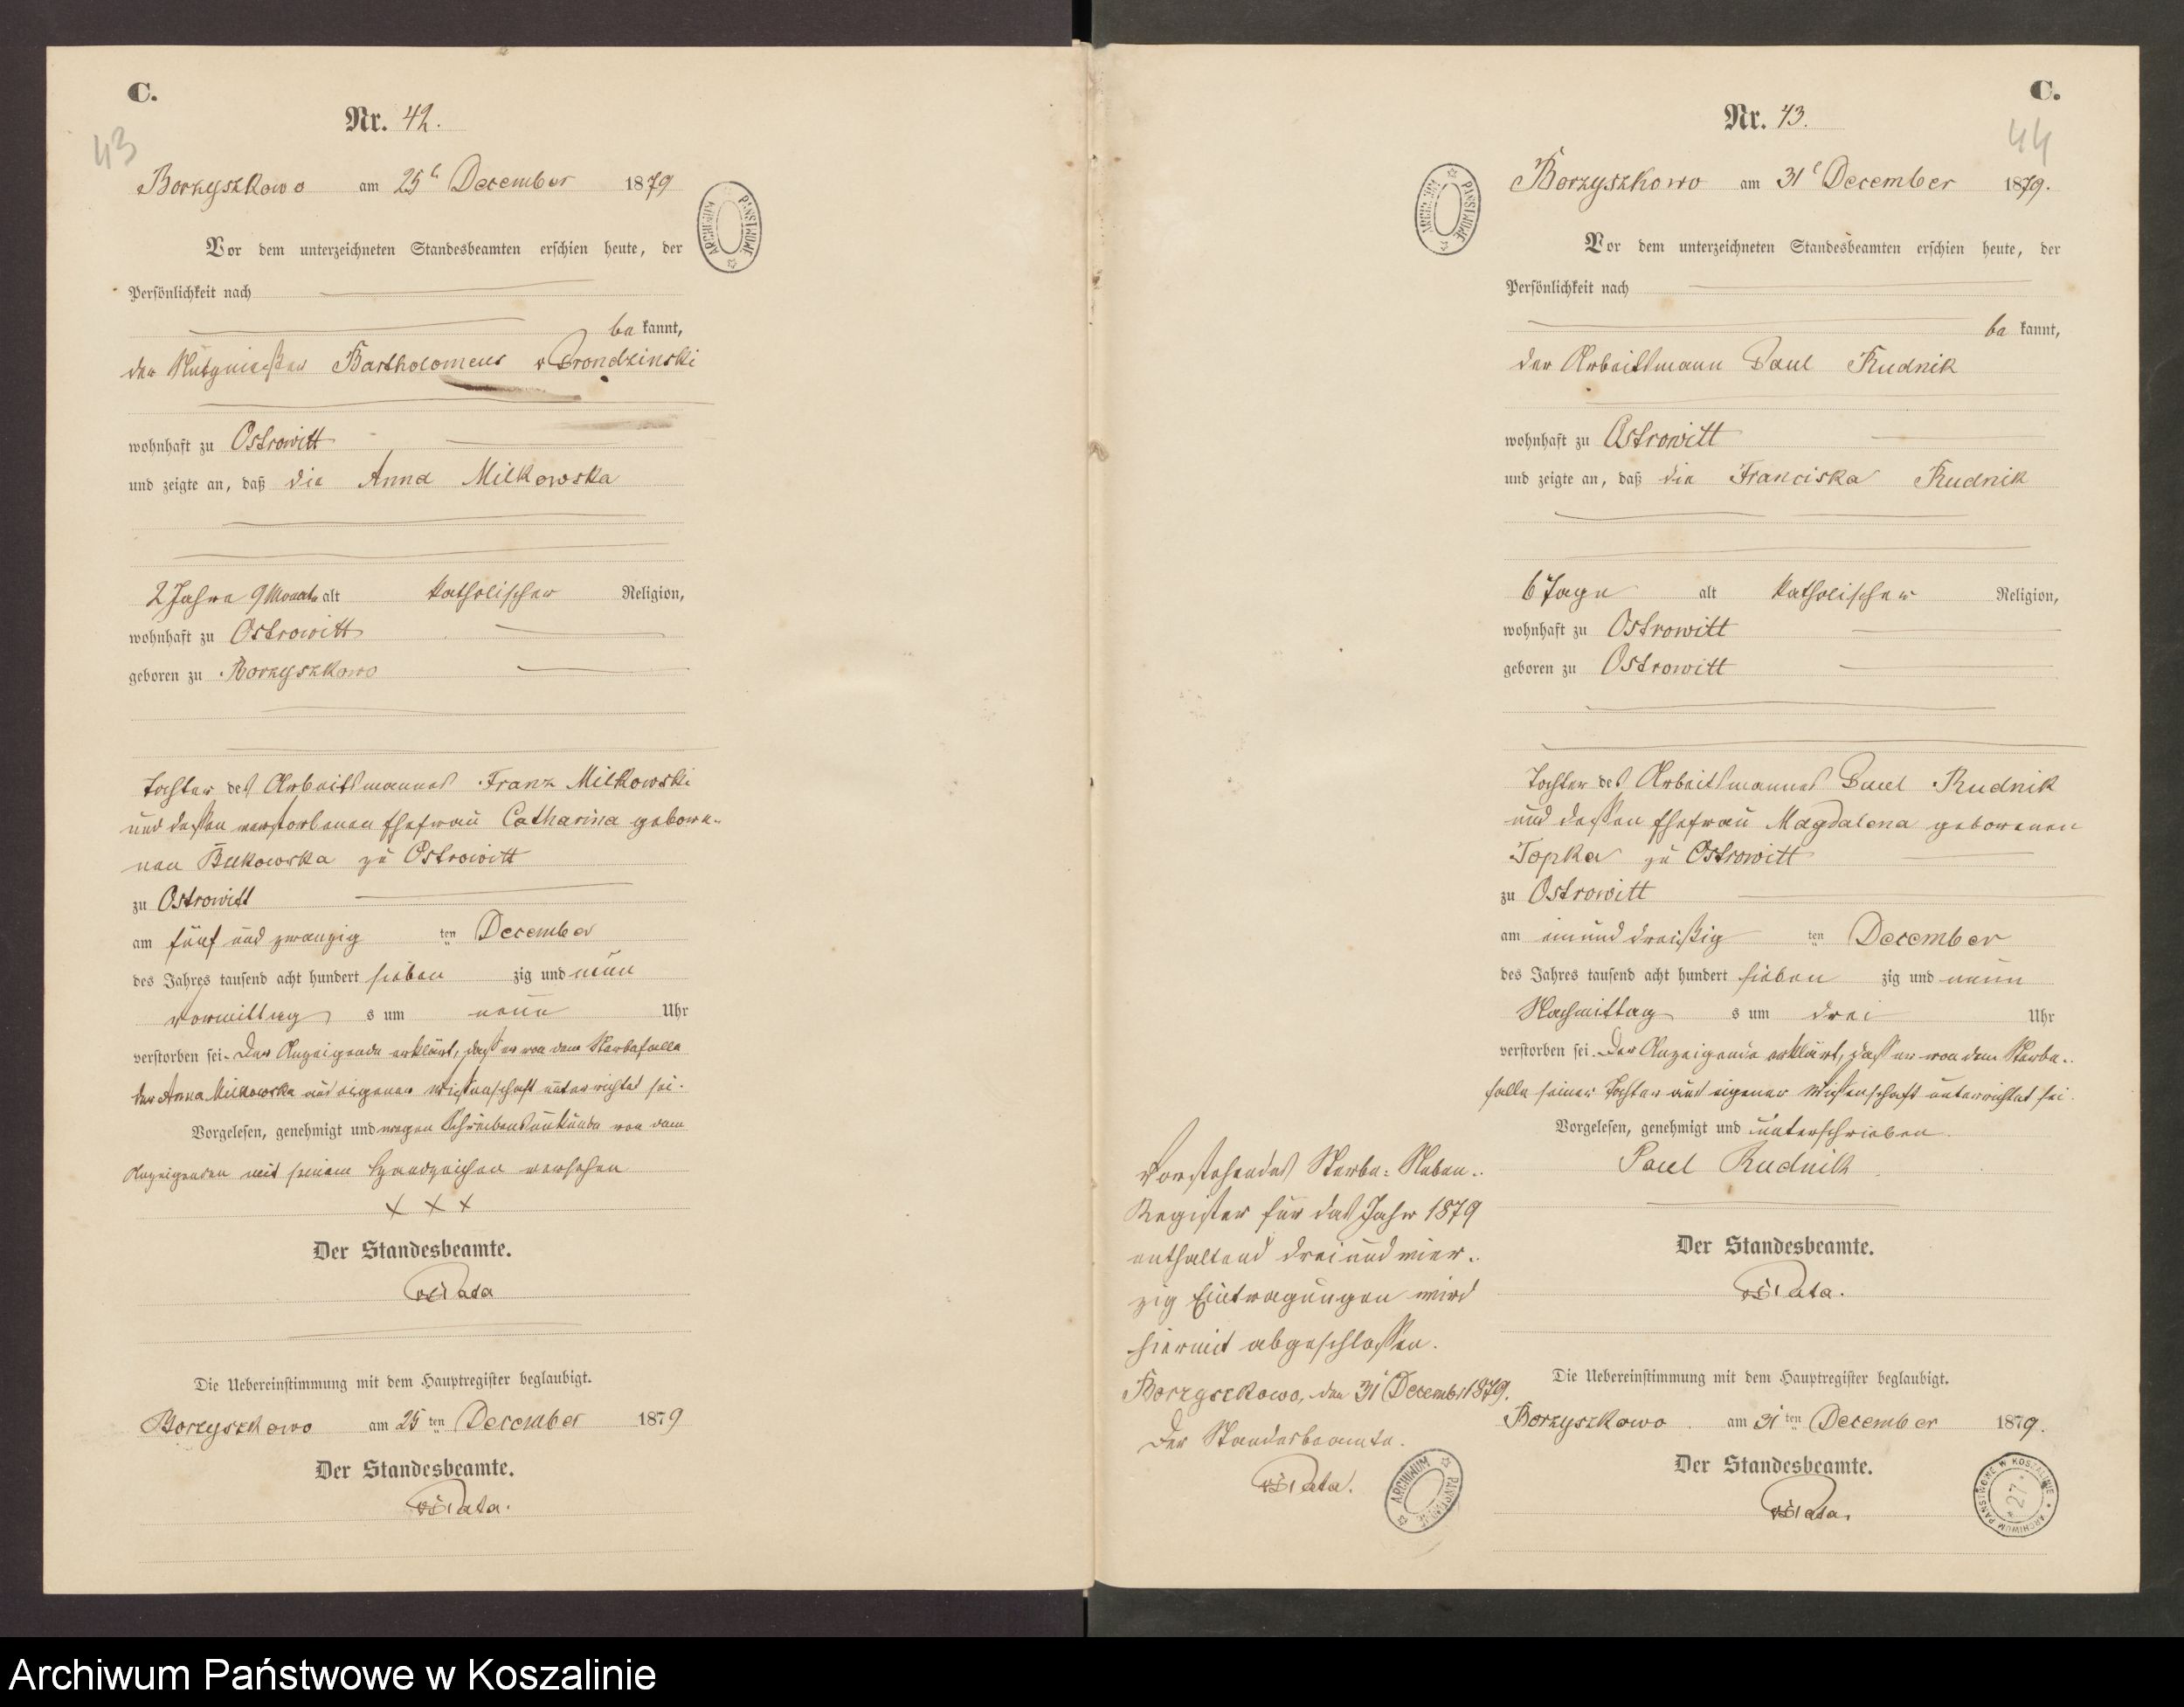 C.
43
Nr. 42.
Borzyszkowo am 25t December 1879
Vor dem unterzeichneten Standesbeamten erschien heute, der
Persönlichkeit nach
be kannt,
der Bartholomeus v Prondzinski
wohnhaft zu Ostrowitt
und zeigte an, daß die Anna Milkowska
2 Jahre 9 Monate alt katholischer Religion,
wohnhaft zu Ostrowitt
geboren zu Borzyszkowo
Tochter des Arbeitsmannes Franz Milkowski
und dessen verstorbenen Ehefrau Catharina gebore-
nen Bukowska zu Ostrowitt
zu Ostrowitt
am fünf und zwanzig ten December
des Jahres tausend acht hundert sieben zig und neun
Vormittag s um neun Uhr
verstorben sei. Der Anzeigende erklärt, daß er von dem Sterbefalle
der Anna Milkowska aus eigener Wissenschaft unterrichtet sei.
Vorgelesen, genehmigt und wegen Schreibensunkunde von dem
Anzeigenden mit seinem Handzeichen versehen
X X X
Der Standesbeamte.
Die Uebereinstimmung mit dem Hauptregister beglaubigt.
Borzyszkowo am 25 ten December 1879
Der Standesbeamte.
C.
44
Nr. 43.
Borzyszkowo am 31t December 1879.
Vor dem unterzeichneten Standesbeamten erschien heute, der
Persönlichkeit nach
be kannt,
der Arbeitsmann Paul Rudnik
wohnhaft zu Ostrowitt
und zeigte an, daß die Franciska Rudnik
6 Tage alt katholischer Religion,
wohnhaft zu Ostrowitt
geboren zu Ostrowitt
Tochter des Arbeitsmannes Paul Rudnik
und dessen Ehefrau Magdalena geborenen
Topka zu Ostrowitt
zu Ostrowitt
am einund dreißig ten December
des Jahres tausend acht hundert sieben zig und neun
Nachmittag s um drei Uhr
verstorben sei. Der Anzeigende erklärt, daß er von dem Sterbe-
falle seiner Tochter aus eigener Wissenschaft unterrichtet sei.
Vorgelesen, genehmigt und unterschrieben
Paul Rudnik
Der Standesbeamte.
Die Uebereinstimmung mit dem Hauptregister beglaubigt.
Borzyszkowo am 31 ten December 1879.
Der Standesbeamte.
Vorstehendes Sterbe-Neben-
Register für das Jahr 1879
enthaltend dreiundvier-
zig Eintragungen wird
hiermit abgeschlossen.
Borzyszkowo, den 31t Decembr 1879.
Der Standesbeamte.
ARCHIWUM PAŃSTWOWE
ARCHIWUM PAŃSTWOWE
ARCHIWUM PAŃSTWOWE
ARCHIWUM PAŃSTWOWE W KOSZALINIE
27
Archiwum Państwowe w Koszalinie